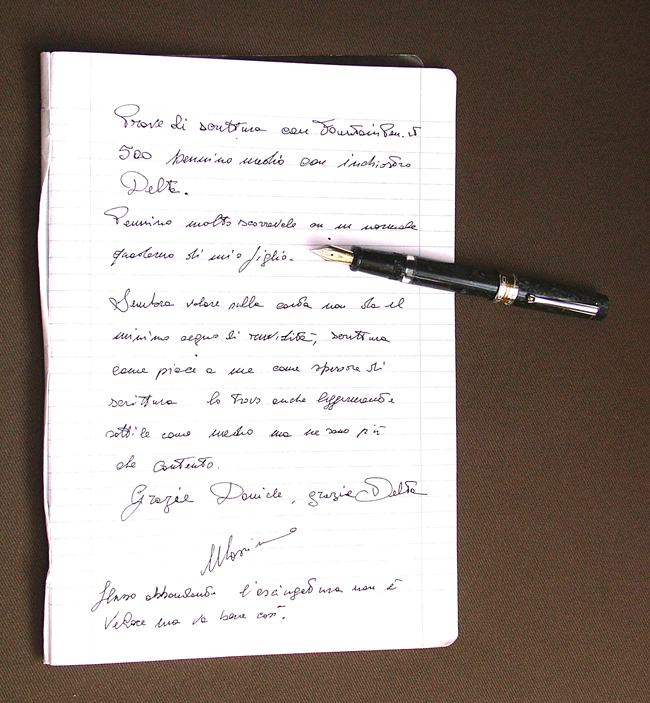 Prove di scrittura con FountainPen.it
500 pennino medio con inchiostro
Delta.
Pennino molto scorrevole su un normale
quaderno di mio figlio.
Sembra volare sulla carta non dà il
minimo segno di ruvidità, scrittura
come piace a me come spessore di
scrittura lo trovo anche leggermente
sottile come medio ma ne sono più
che contento.
Grazie Daniele, grazie Delta
Massimo
Flusso abbondante l'asciugatura non è
veloce ma va bene così.